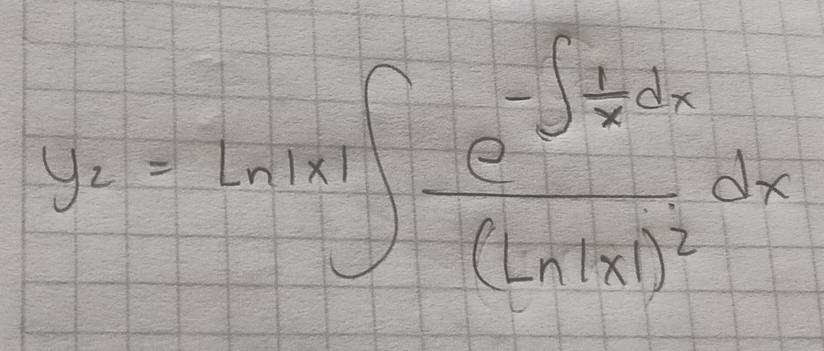 y₂ = Ln|x| ∫ e^(-∫ 1/x dx) / (Ln|x|)² dx